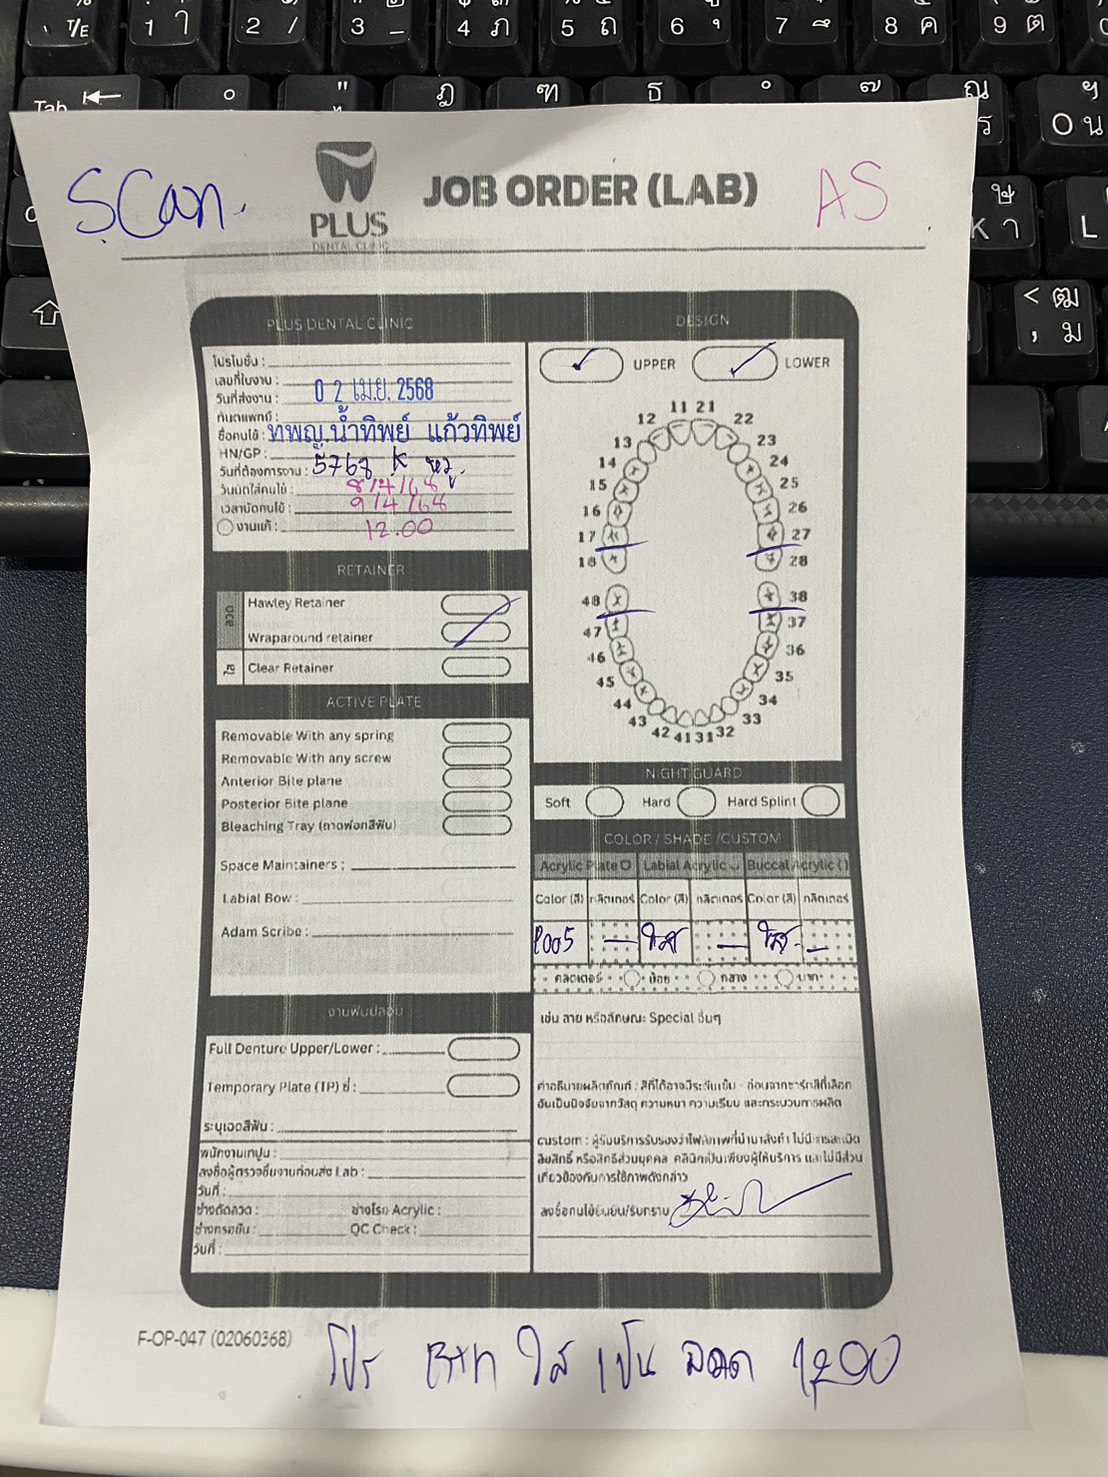 SCan.
PLUS
DENTAL CLINIC
JOB ORDER (LAB)
AS
PLUS DENTAL CLINIC
โปรโมชั่น :
เลขที่ใบงาน :
วันที่ส่งงาน : 0 2 เม.ย. 2568
ทันตแพทย์ :
ชื่อคนไข้ : ทพญ.น้ำทิพย์ แก้วทิพย์
HN/GP :
วันที่ต้องการงาน : 5768 K
วันนัดใส่คนไข้ : 8/4/68
เวลานัดคนไข้ : 9/4/68
งานแก้ : 12.00
RETAINER
ลวด
Hawley Retainer
Wraparound retainer
ใส
Clear Retainer
ACTIVE PLATE
Removable With any spring
Removable With any screw
Anterior Bite plane
Posterior Bite plane
Bleaching Tray (ถาดฟอกสีฟัน)
Space Maintainers :
Labial Bow :
Adam Scribe :
งานฟันปลอม
Full Denture Upper/Lower :
Temporary Plate (TP) ซี่ :
ระบุเฉดสีฟัน :
พนักงานเทปูน :
ลงชื่อผู้ตรวจชิ้นงานก่อนส่ง Lab :
วันที่ :
ช่างดัดลวด : ช่างโรย Acrylic :
ช่างกรอขัด : QC Check :
วันที่ :
DESIGN
✓ UPPER ✓ LOWER
11 21
12 22
13 23
14 24
15 25
16 26
17 27
18 28
48 38
47 37
46 36
45 35
44 34
43 33
42 41 31 32
NIGHT GUARD
Soft Hard Hard Splint
COLOR / SHADE /CUSTOM
Acrylic Plate Labial Acrylic Buccal Acrylic
Color (สี) กลิตเตอร์ Color (สี) กลิตเตอร์ Color (สี) กลิตเตอร์
P005 — ใส — ใส —
กลิตเตอร์ น้อย กลาง มาก
เช่น ลาย หรือลักษณะ Special อื่นๆ
คำอธิบายผลิตภัณฑ์ : สีที่ได้อาจมีระดับเข้ม - อ่อนจากชาร์ทสีที่เลือก
อันเป็นปัจจัยจากวัสดุ ความหนา ความเรียบ และกระบวนการผลิต
custom : ผู้รับบริการรับรองว่าไฟล์ภาพที่นำมาสั่งทำ ไม่มีการละเมิด
ลิขสิทธิ์ หรือสิทธิส่วนบุคคล คลินิกเป็นเพียงผู้ให้บริการ และไม่มีส่วน
เกี่ยวข้องกับการใช้ภาพดังกล่าว
ลงชื่อคนไข้ยืนยัน/รับทราบ
F-OP-047 (02060368)
โปร ใส เป็น ลวด 1200